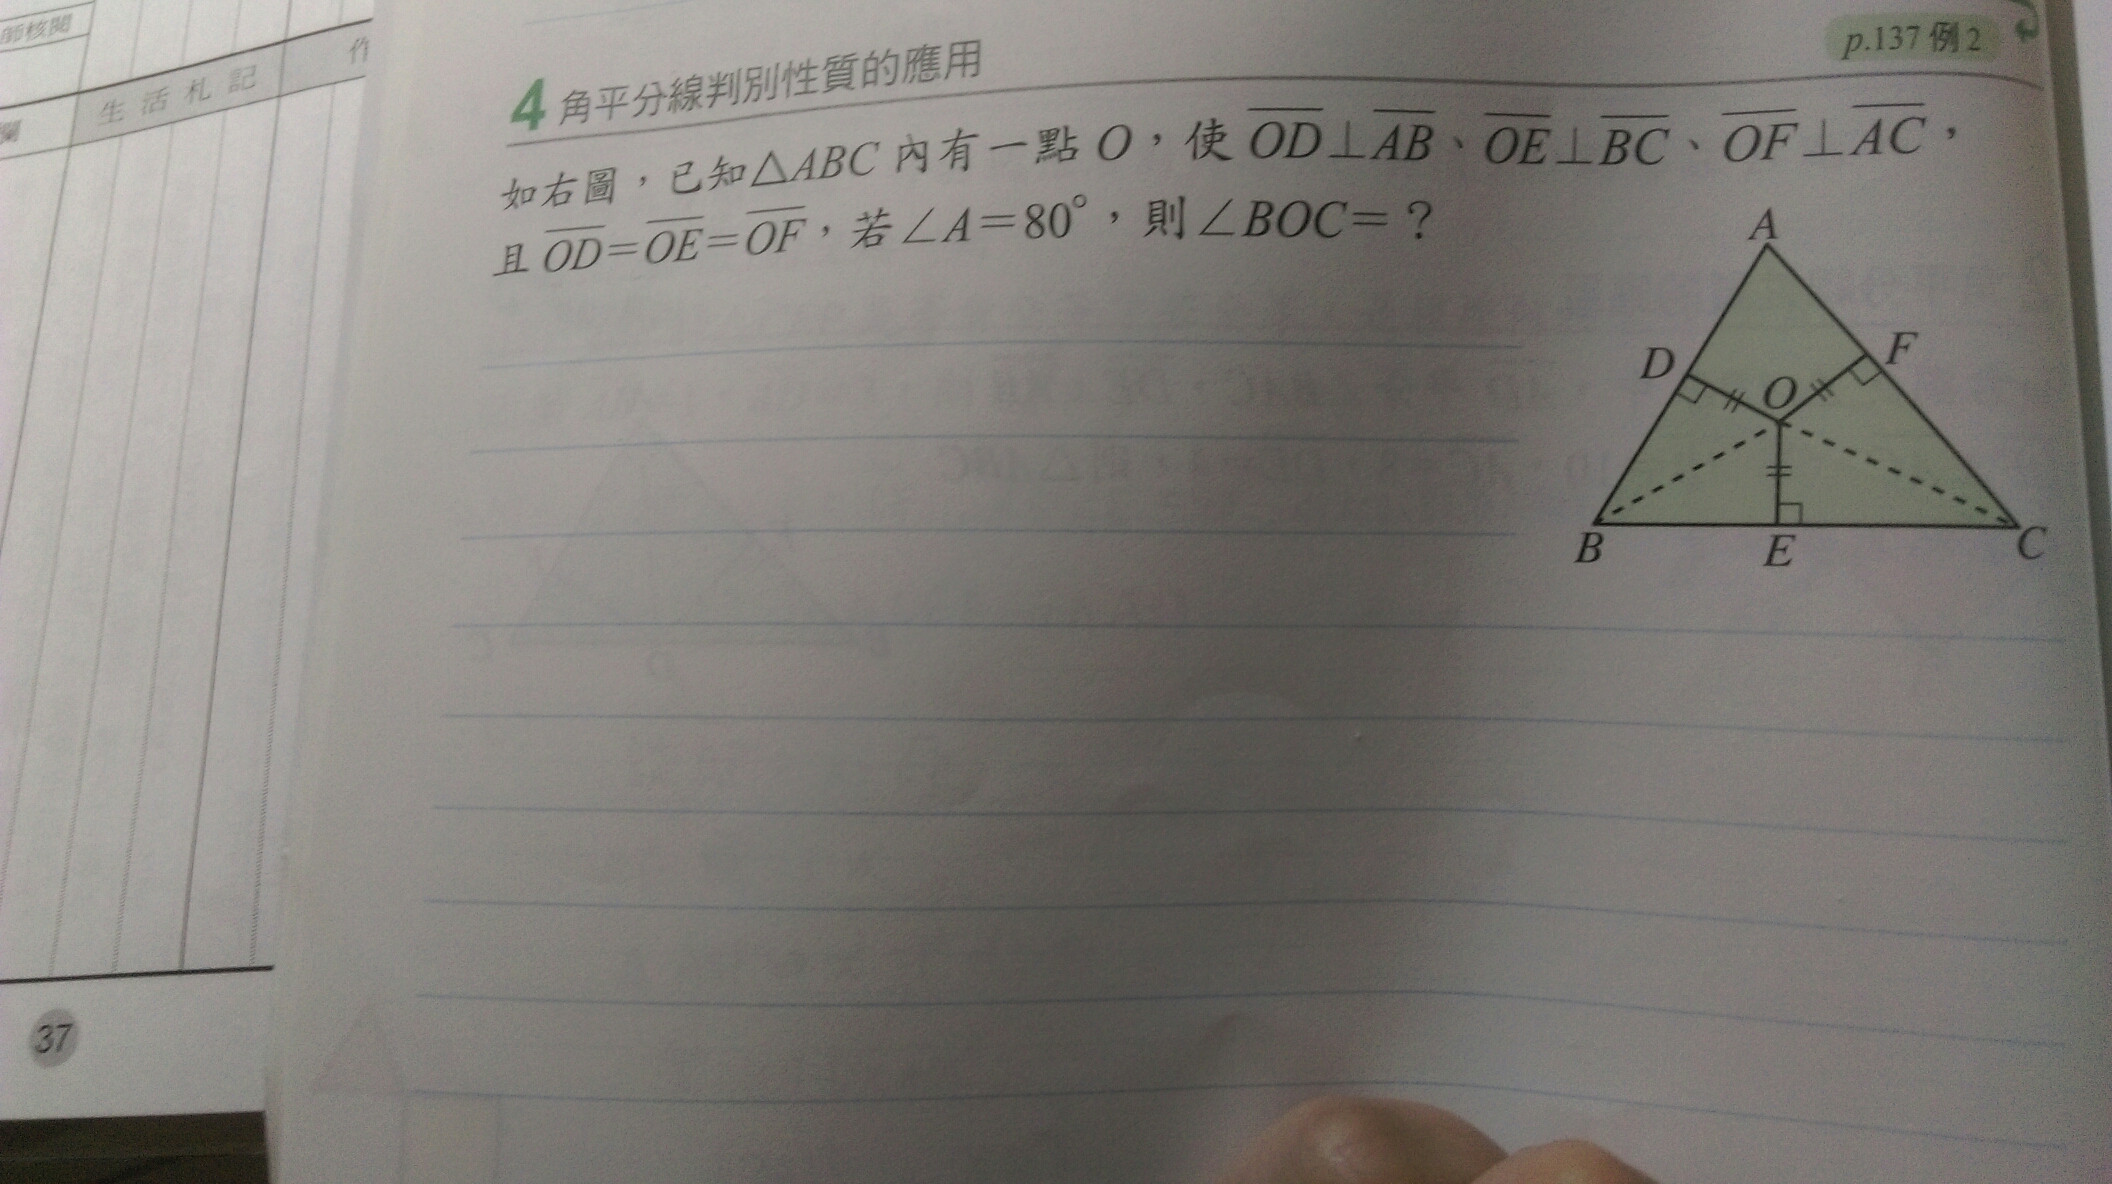 師核閱
生活札記
作
欄
37
p.137 例2
4 角平分線判別性質的應用
如右圖，已知△ABC 內有一點 O，使 OD⊥AB、OE⊥BC、OF⊥AC，
且 OD=OE=OF，若∠A=80°，則∠BOC=？
A
D
F
O
B
E
C